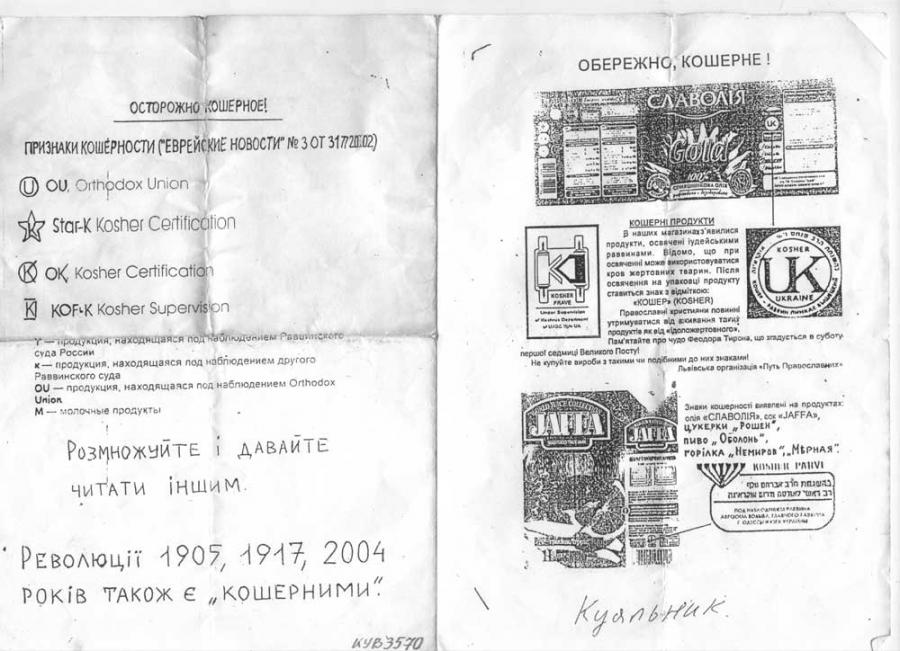 ОСТОРОЖНО КОШЕРНОЕ!
ПРИЗНАКИ КОШЕРНОСТИ ("ЕВРЕЙСКИЕ НОВОСТИ" № 3 ОТ
OU, Orthodox Union
Star-K Kosher Certification
OK, Kosher Certification
KOF-K Kosher Supervision
— продукция, находящаяся под наблюдением Раввинского
суда России
к — продукция, находящаяся под наблюдением другого
Раввинского суда
OU — продукция, находящаяся под наблюдением Orthodox
Union
М — молочные продукты
Розмножуйте і давайте
читати іншим.
Революції 1905, 1917, 2004
років також є „кошерними".
КУВ3570
ОБЕРЕЖНО, КОШЕРНЕ !
СЛАВОЛІЯ
UK
Gold
100%
СОНЯШНИКОВА ОЛІЯ
КОШЕРНІ ПРОДУКТИ
В наших магазинах з'явилися
продукти, освячені іудейськими
раввинами. Відомо, що при
освяченні може використовуватися
кров жертовних тварин. Після
освячення на упаковці продукту
ставиться знак з відміткою:
«КОШЕР» (KOSHER)
Православні християни повинні
утримуватися від вживання таких
продуктів як від «ідоложертовного».
Пам'ятайте про чудо Феодора Тирона, що згадується в суботу
першої седмиці Великого Посту!
Не купуйте вироби з такими чи подібними до них знаками!
Львівська организація «Путь Православних»
KOSHER
PARVE
Under Supervision
of Kashrus Department
KOSHER
UK
UKRAINE
JAFFA
JAFFA
Знаки кошерності виявлені на продуктах:
олія «СЛАВОЛІЯ», сок «JAFFA»,
цукерки „Рошен",
пиво „Оболонь",
горілка „Немиров", „Мерная".
KOSHER PARVE
ПОД НАБЛЮДЕНИЕМ РАВВИНА
АВРООМА ВОЛЬФА, ГЛАВНОГО РАВВИНА
Г. ОДЕССЫ И ЮГА УКРАИНЫ
Куяльник.